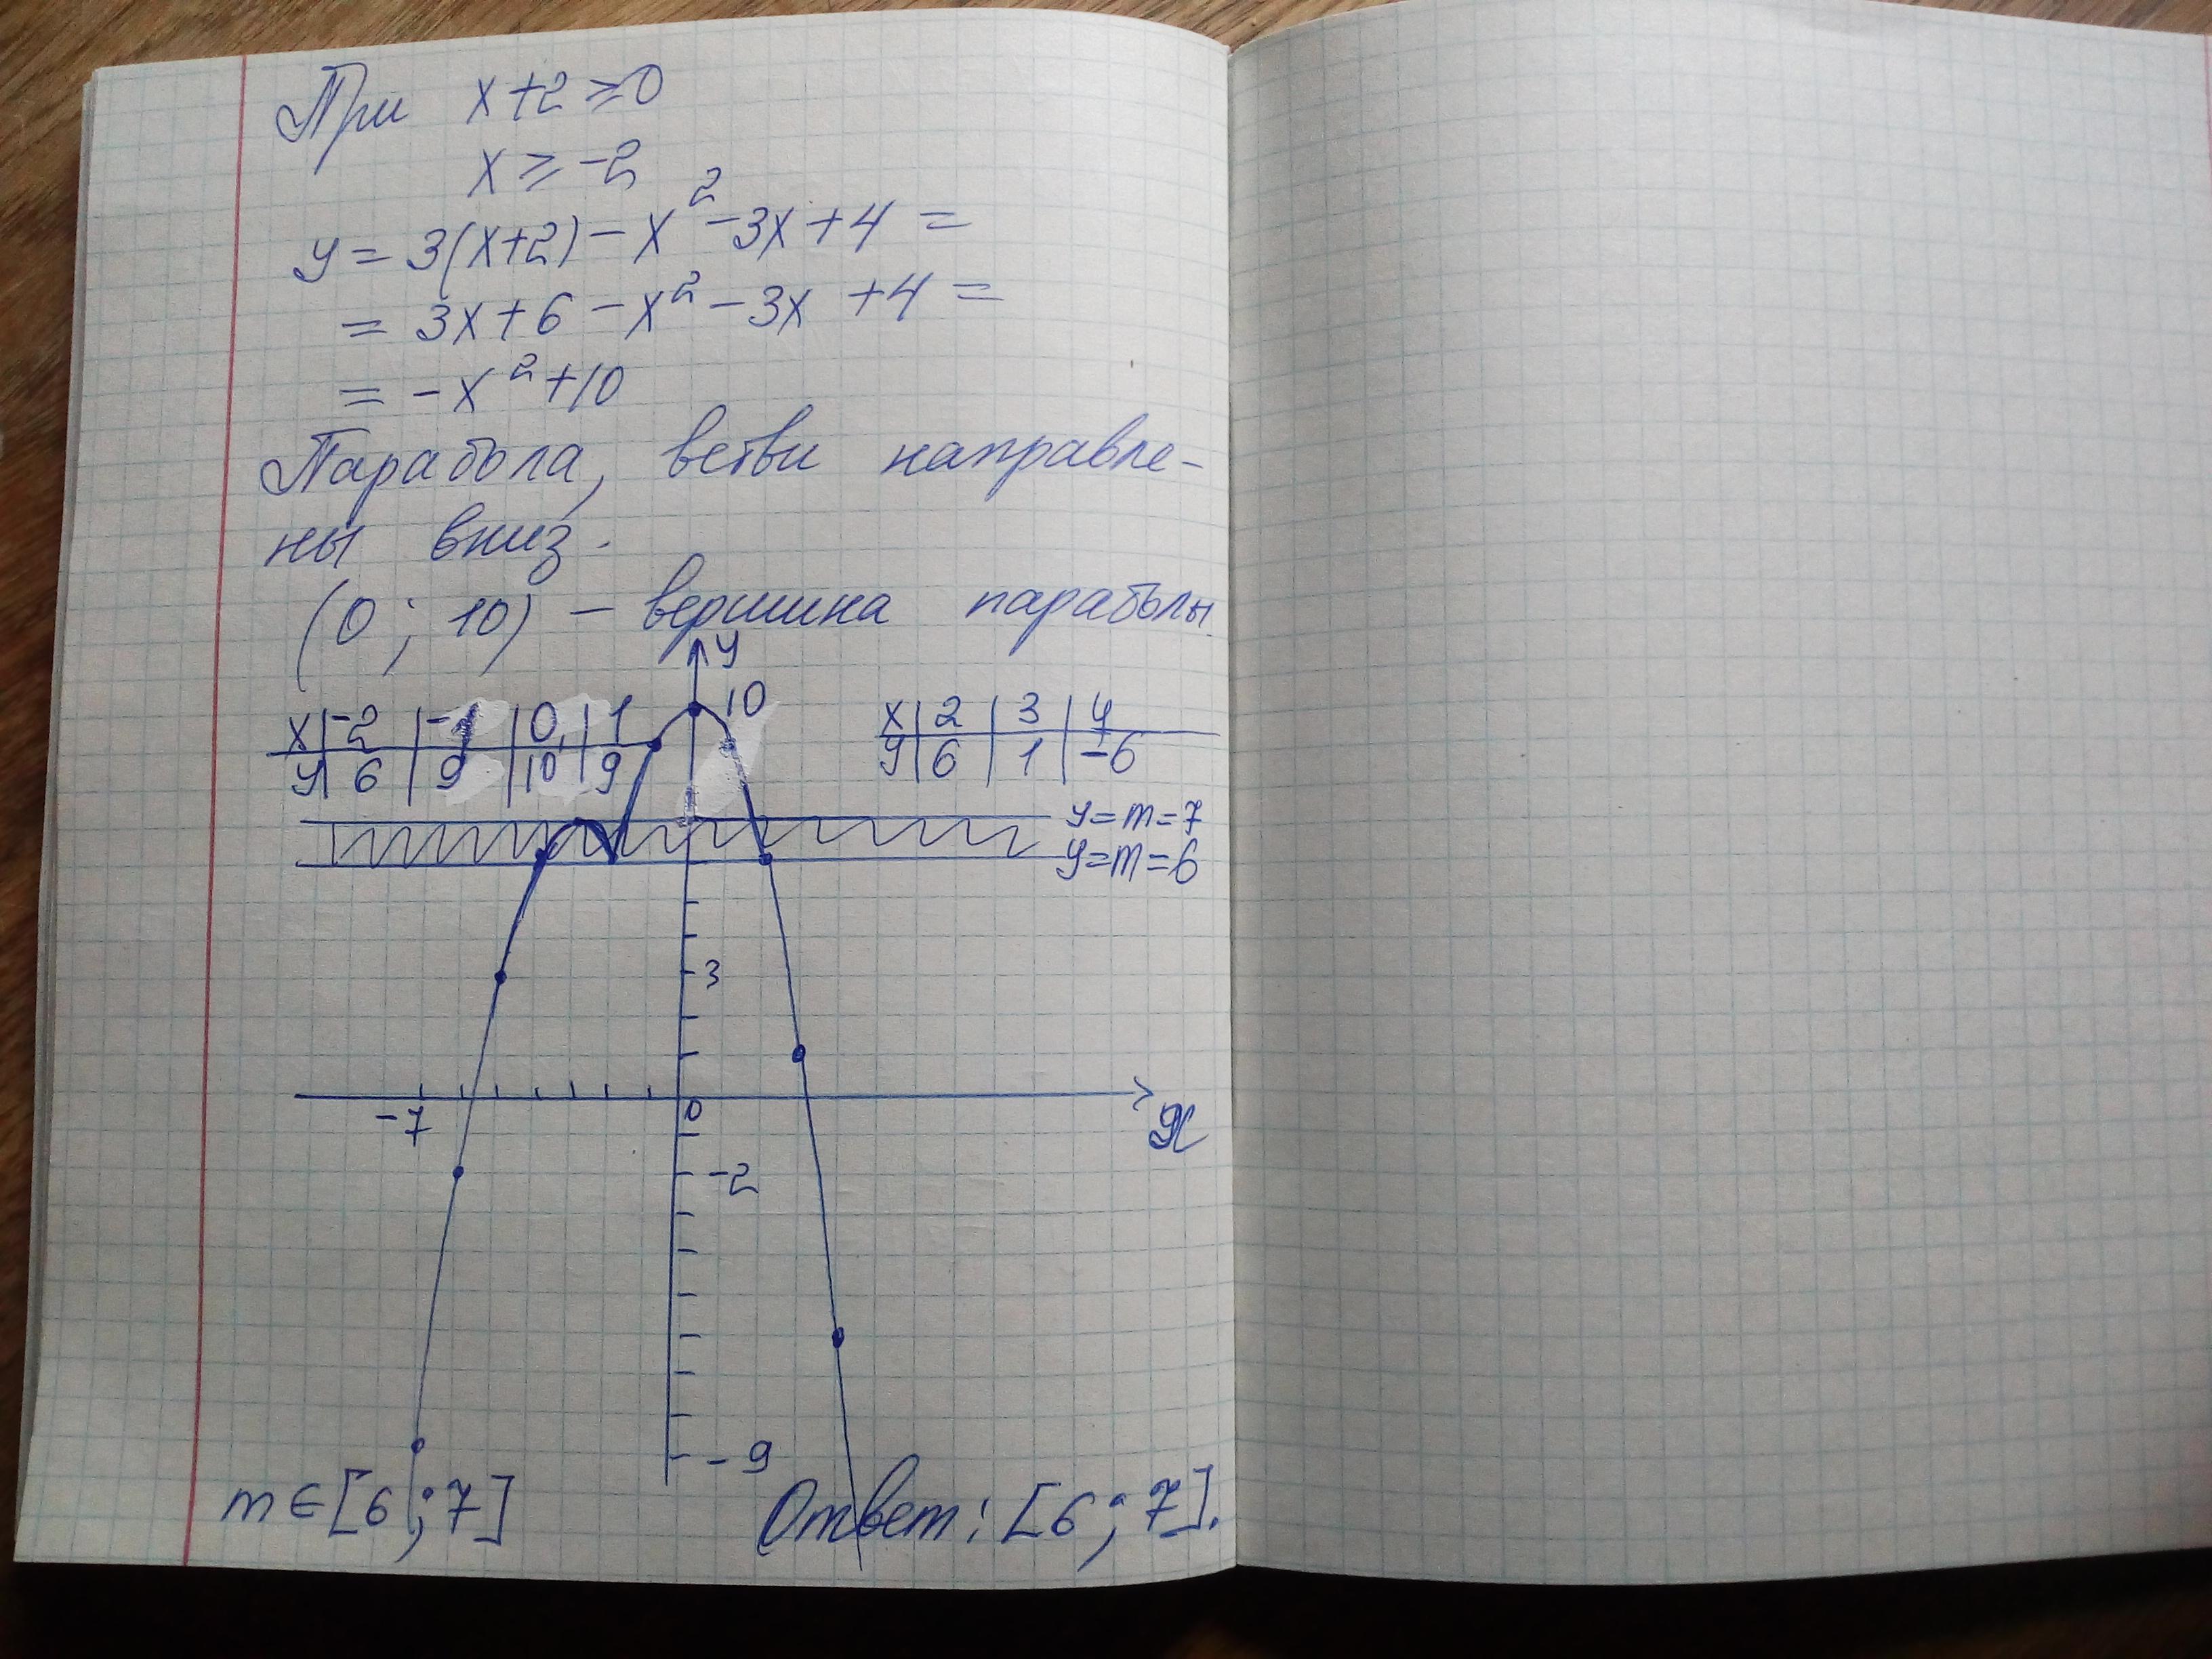 При x+2≥0
x≥-2
y=3(x+2)-x²-3x+4=
=3x+6-x²-3x+4=
=-x²+10
Парабола, ветви направле-
ны вниз.
(0; 10) - вершина параболы
y
10
x | -2 | -1 | 0 | 1
y | 6 | 9 | 10 | 9
x | 2 | 3 | 4
y | 6 | 1 | -6
y=m=7
y=m=6
3
-7
0
x
-2
-9
m∈[6;7]
Ответ: [6;7].